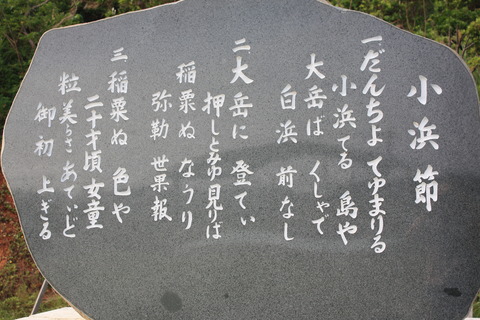 小浜節
一だんちよ てゆまりる
小浜てる 島や
大岳ば くしゃで
白浜 前なし
二大岳に 登てい
押しとみゆ見りば
稲粟ぬ なうり
弥勒 世果報
三 稲粟ぬ 色や
二十才頃 女童
粒美らさ あてぃど
御初 上ぎる